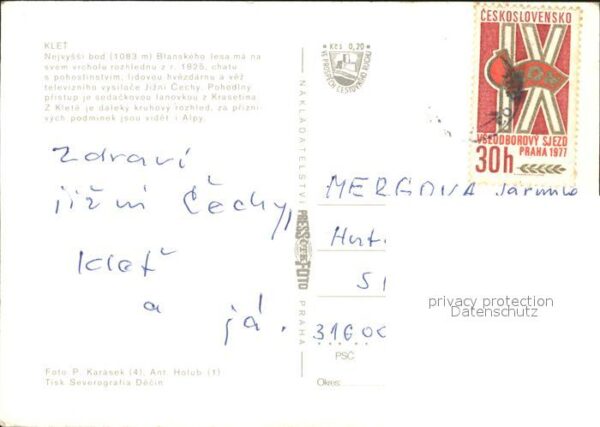 KLEŤ
Nejvyšší bod (1083 m) Blanského lesa má na
svém vrcholu rozhlednu z r. 1925, chatu
s pohostinstvím, lidovou hvězdárnu a věž
televizního vysílače Jižní Čechy. Pohodlný
přístup je sedačkovou lanovkou z Krasetína.
Z Kletě je daleký kruhový rozhled, za přízni-
vých podmínek jsou vidět i Alpy.
Zdraví
jižní Čechy,
Kleť
a já.
Foto P. Karásek (4), Ant. Holub (1)
Tisk Severografia Děčín
NAKLADATELSTVÍ PRESSFOTO PRAHA
Kčs 0,20
VE PROSPĚCH CESTOVNÍHO RUCHU
ČESKOSLOVENSKO
IX
VŠEODBOROVÝ SJEZD
PRAHA 1977
30h
Jarmila
31600
PSČ
Okres:
privacy protection
Datenschutz